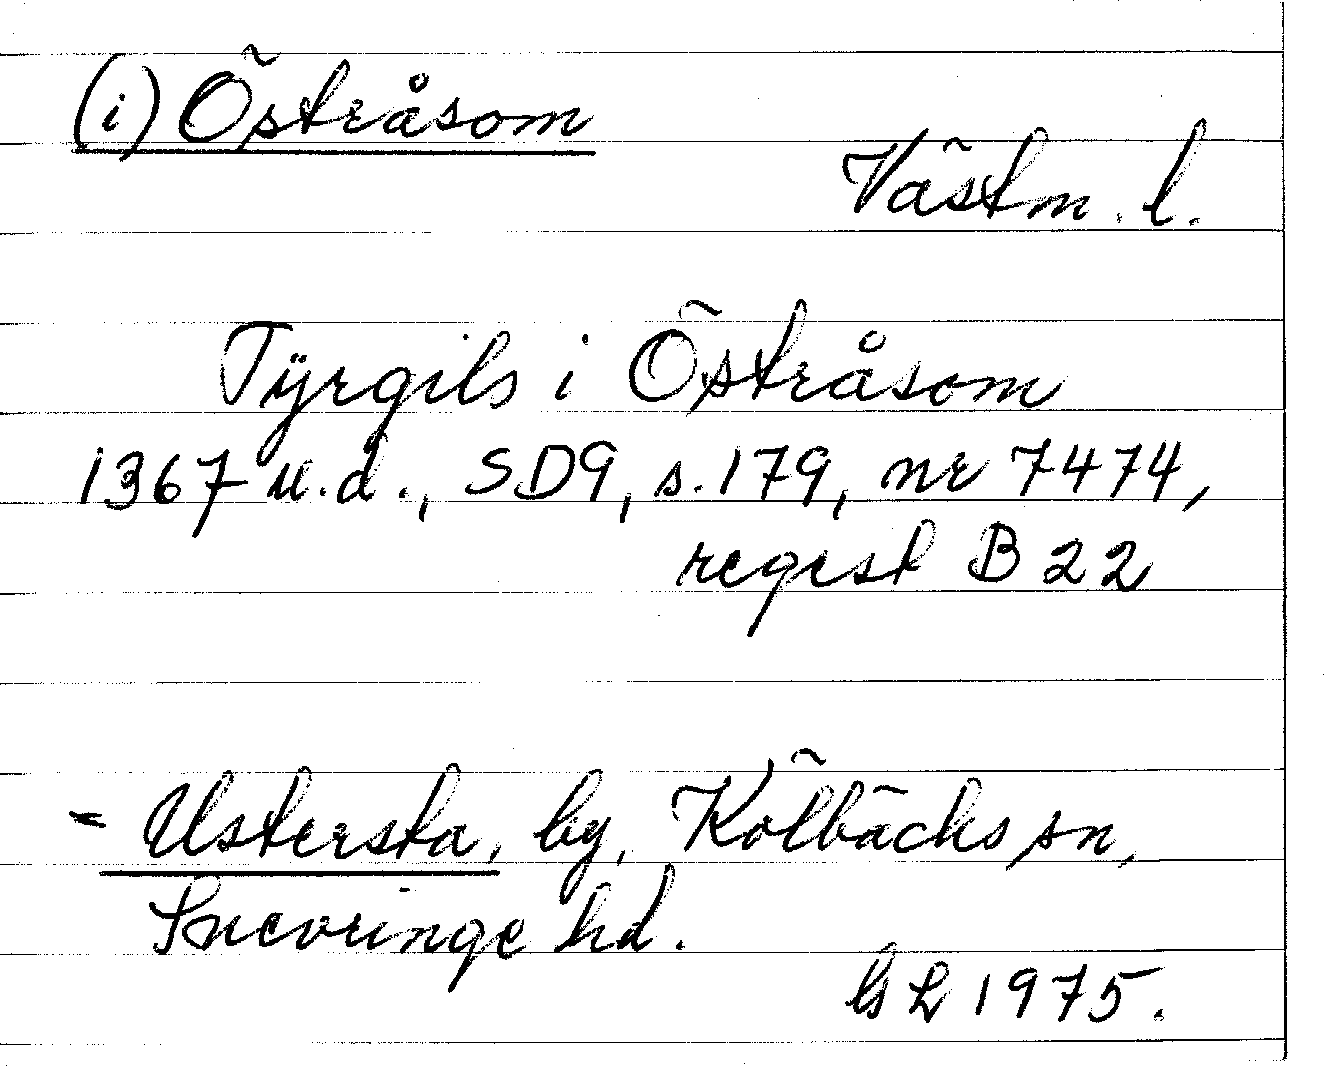 (i) Östråsom
Västm. l.
Tÿrgils i Östråsom
1367 u.d., SD9, s. 179, nr 7474,
regest B 22
= Ustersta, by, Kolbäcks sn,
Snevringe hd.
1975.